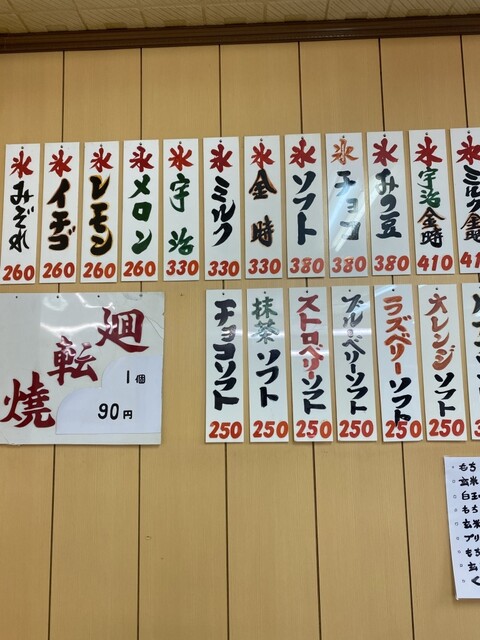 氷 みぞれ 260
氷 イチゴ 260
氷 レモン 260
氷 メロン 260
氷 宇治 330
氷 ミルク 330
氷 金時 330
氷 ソフト 380
氷 チョコ 380
氷 みつ豆 380
氷 宇治金時 410
氷 ミルク金時 41
廻転焼
1個
90円
チョコソフト 250
抹茶ソフト 250
ストロベリーソフト 250
ブルーベリーソフト 250
ラズベリーソフト 250
オレンジソフト 250
もち
玄米
白玉
もち
玄米
プリ
もち
玄
く